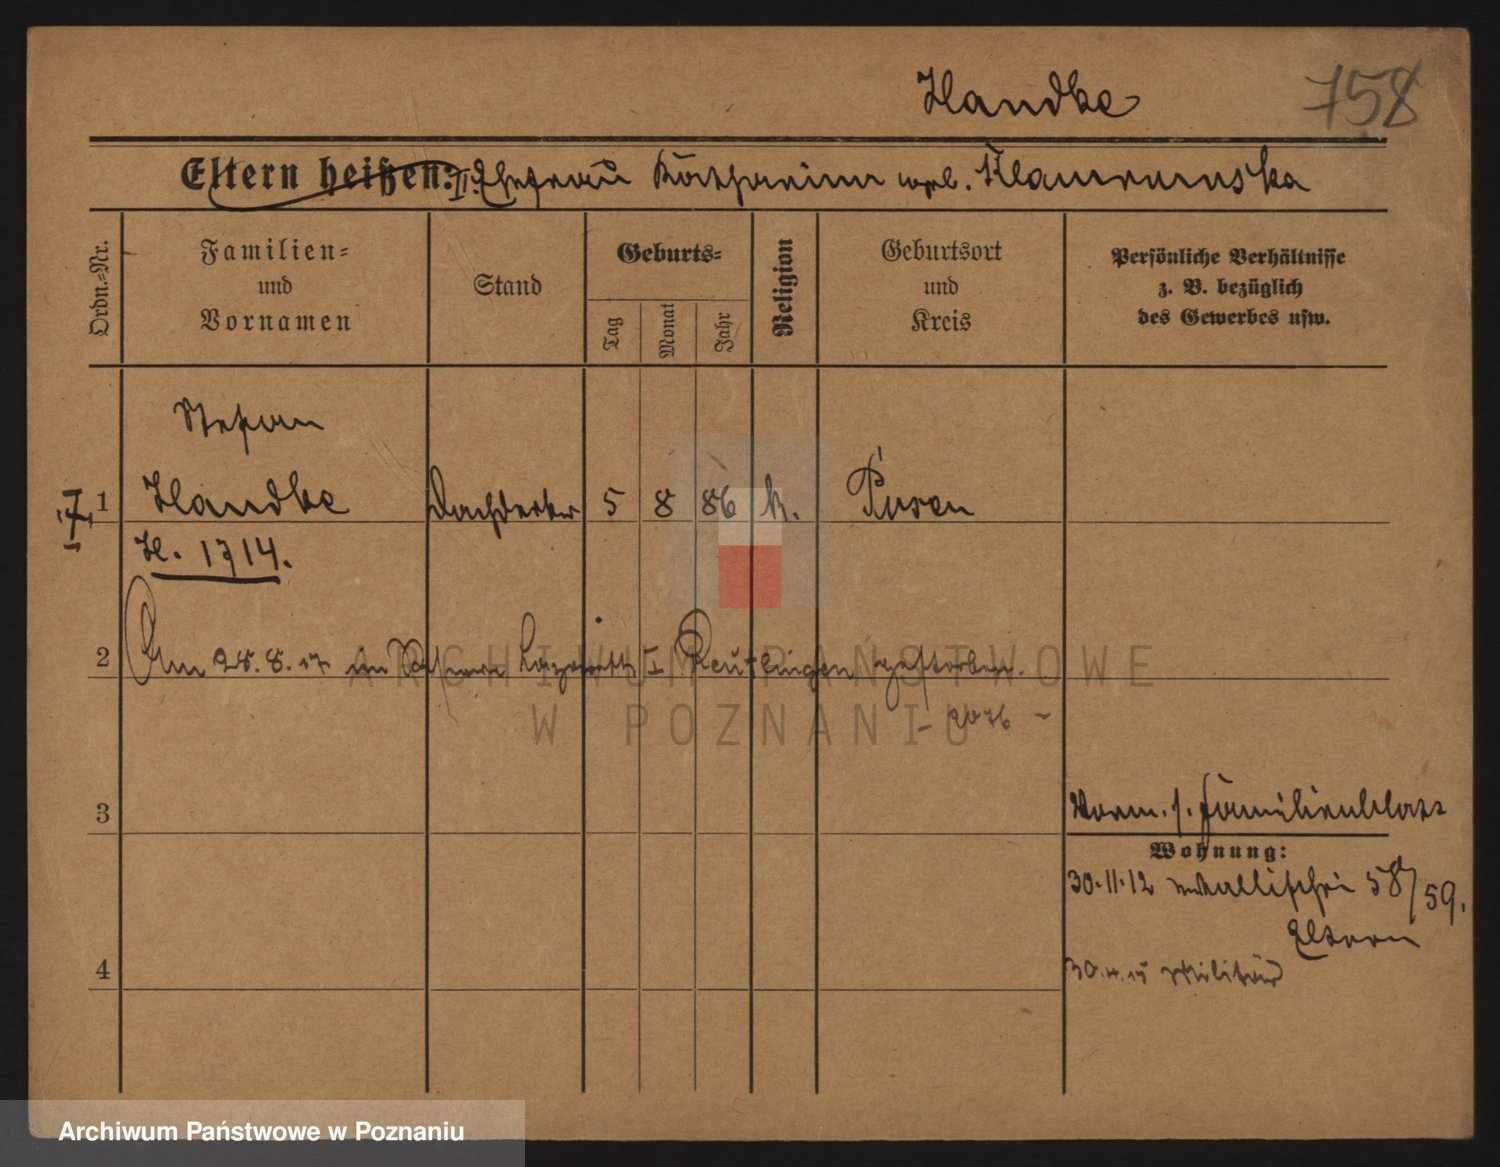 Handke
758
Eltern heißen: II. Ehefrau Katharina
Ordn.-Nr.
Familien-
und
Vornamen
Stand
Geburts-
Tag
Monat
Jahr
Religion
Geburtsort
und
Kreis
Persönliche Verhältnisse
z. B. bezüglich
des Gewerbes usw.
Stefan
1 Handke Dachdecker 5 8 86 k. Posen
H. 1714.
2 Am 28.8.17 im Reserve Lazarett I Reutlingen gestorben.
- 2076 -
3 Vorm. s. Familienblatt
Wohnung:
30.11.12 Wallischei 58/59.
Eltern
4 Militär
ARCHIWUM PAŃSTWOWE
W POZNANIU
Archiwum Państwowe w Poznaniu